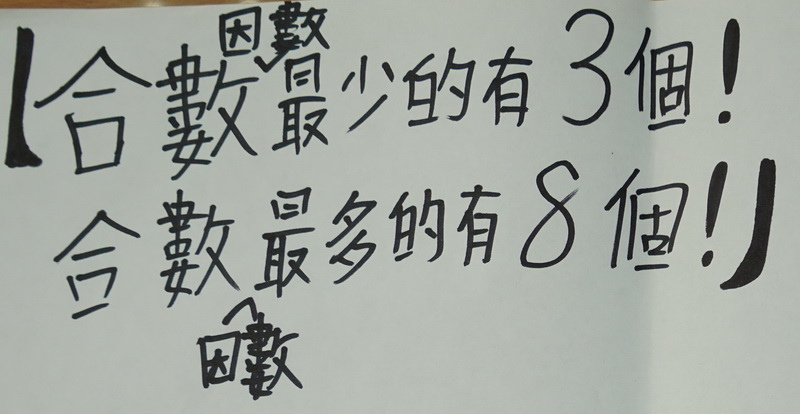 【合數因數最少的有3個!
合數因數最多的有8個!】